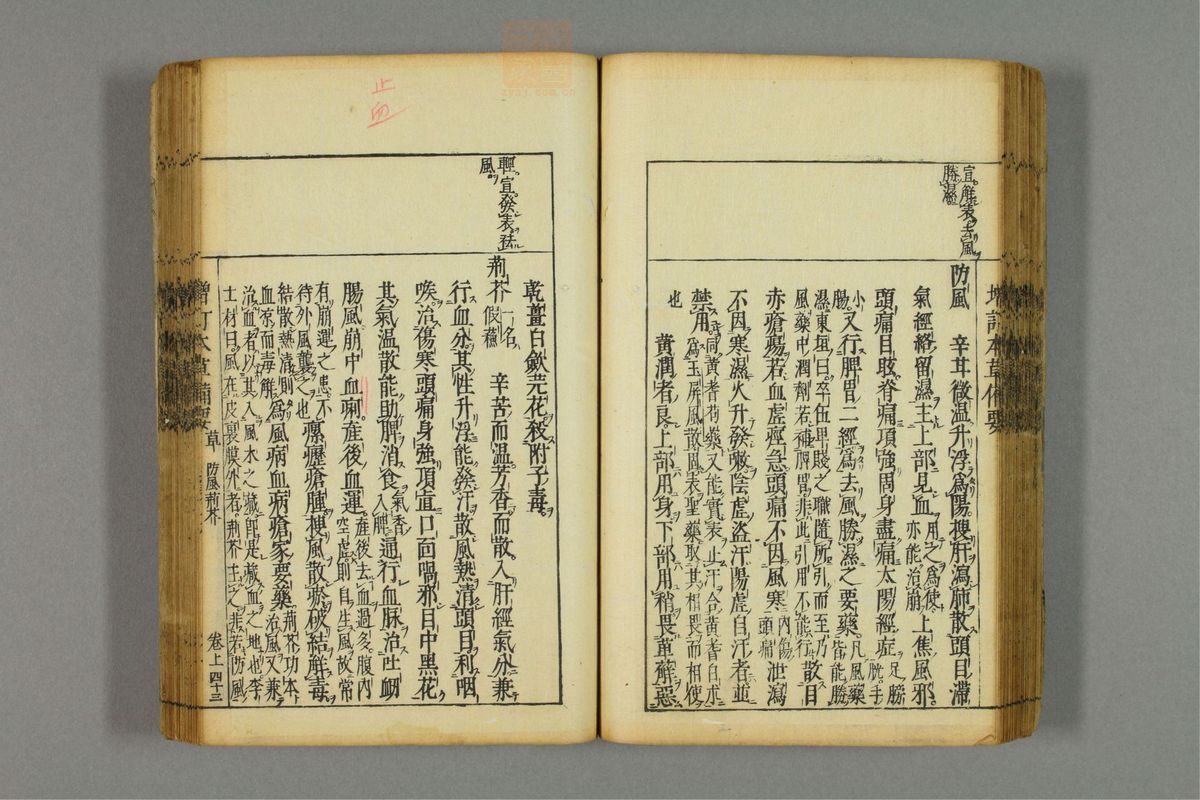 增訂本草備要
宣解表去風
勝濕
防風　辛甘微溫升浮爲陽搜肝瀉肺散頭目滯
氣經絡留濕主上部見血用之爲使亦能治崩上焦風邪
頭痛目眩脊痛項強周身盡痛太陽經症足膀胱手
小腸又行脾胃二經爲去風勝濕之要藥凡風藥皆能勝
濕東垣曰卒伍卑賤之職隨所引而至乃
風藥中潤劑若補脾胃非此引用不能行散目
赤瘡瘍若血虛痙急頭痛不因風寒內傷頭痛泄瀉
不因寒濕火升發嗽陰虛盜汗陽虛自汗者並
禁用同黃耆芍藥又能實表止汗合黃耆白朮
爲玉屏風散固表聖藥取其相畏而相使
也　黃潤者良上部用身下部用稍畏萆薢惡
乾薑白歛芫花殺附子毒
輕宣發表祛
風
荊芥一名假蘇　辛苦而溫芳香而散入肝經氣分兼
行血分其性升浮能發汗散風熱清頭目利咽
喉治傷寒頭痛身強項直口面喎邪目中黑花
其氣溫散能助脾消食氣香入脾通行血脈治吐衄
腸風崩中血痢產後血運產後去血過多腹內空虛則自生風故常
有崩運之患不
待外風襲之也瘰癧瘡腫搜風散瘀破結解毒
結散熱清則
血涼而毒解爲風病血病瘡家要藥荊芥功本治風又兼
治血者以其入風木之臟卽是藏血之地也李
士材曰風在皮裏膜外者荊芥主之非若防風
增訂本草備要　草　防風荊芥　卷上四十三
止
血